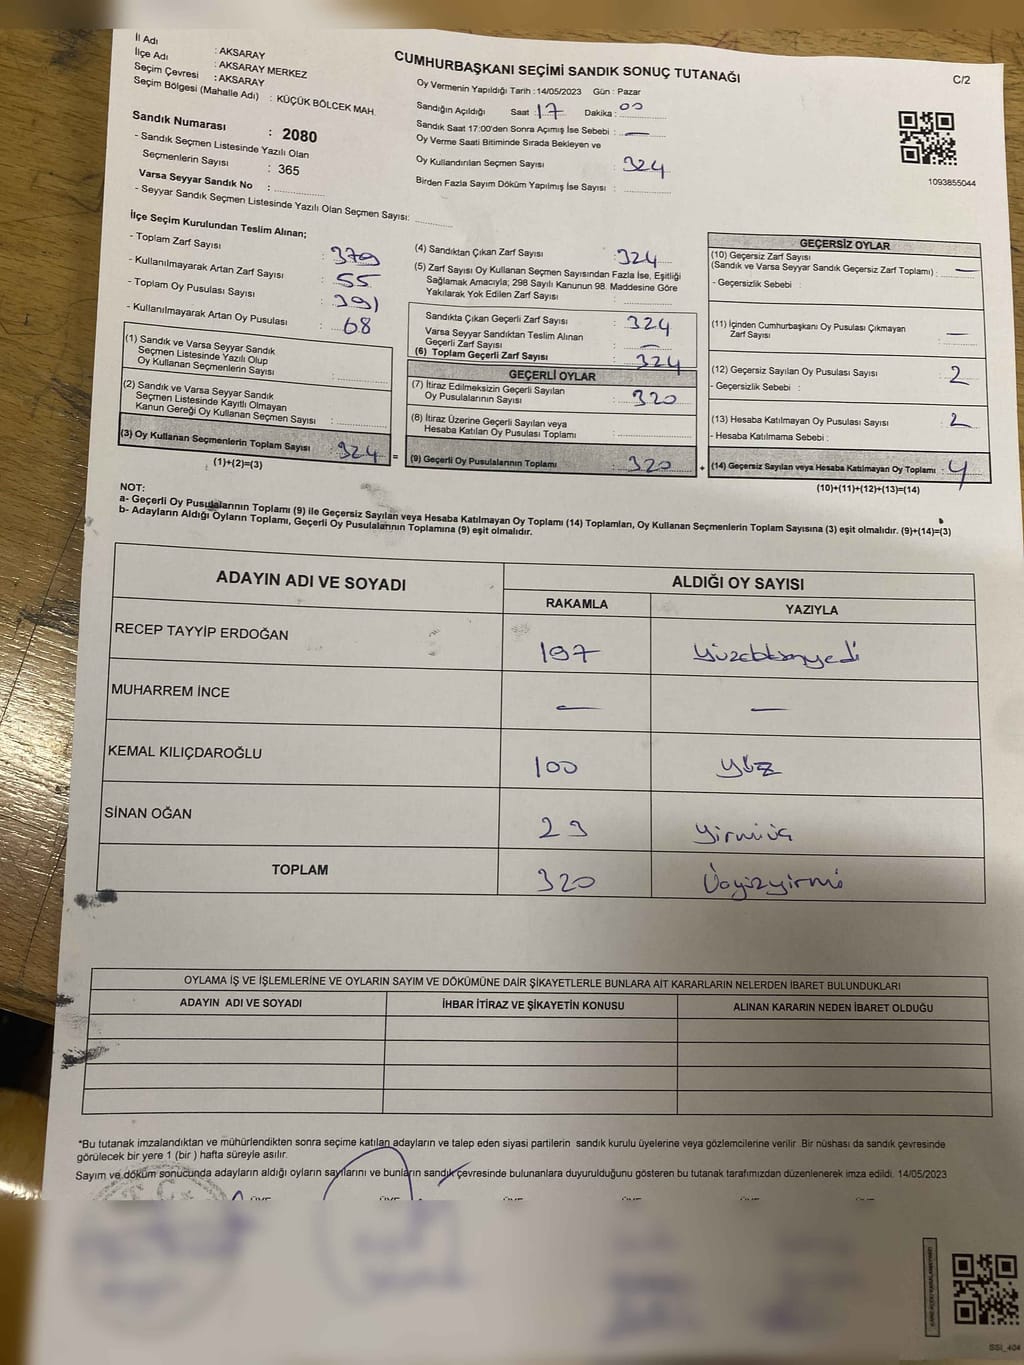 İl Adı : AKSARAY
İlçe Adı : AKSARAY MERKEZ
Seçim Çevresi : AKSARAY
Seçim Bölgesi (Mahalle Adı) : KÜÇÜK BÖLCEK MAH.
Sandık Numarası : 2080
- Sandık Seçmen Listesinde Yazılı Olan
Seçmenlerin Sayısı : 365
Varsa Seyyar Sandık No :
- Seyyar Sandık Seçmen Listesinde Yazılı Olan Seçmen Sayısı:
CUMHURBAŞKANI SEÇİMİ SANDIK SONUÇ TUTANAĞI
C/2
Oy Vermenin Yapıldığı Tarih :14/05/2023 Gün : Pazar
Sandığın Açıldığı Saat : 17 Dakika : 00
Sandık Saat 17:00'den Sonra Açılmış İse Sebebi : —
Oy Verme Saati Bitiminde Sırada Bekleyen ve
Oy Kullandırılan Seçmen Sayısı : 324
Birden Fazla Sayım Döküm Yapılmış İse Sayısı :
1093855044
İlçe Seçim Kurulundan Teslim Alınan;
- Toplam Zarf Sayısı : 379
- Kullanılmayarak Artan Zarf Sayısı : 55
- Toplam Oy Pusulası Sayısı : 391
- Kullanılmayarak Artan Oy Pusulası : 68
(1) Sandık ve Varsa Seyyar Sandık
Seçmen Listesinde Yazılı Olup
Oy Kullanan Seçmenlerin Sayısı :
(2) Sandık ve Varsa Seyyar Sandık
Seçmen Listesinde Kayıtlı Olmayan
Kanun Gereği Oy Kullanan Seçmen Sayısı :
(3) Oy Kullanan Seçmenlerin Toplam Sayısı : 324
(1)+(2)=(3)
(4) Sandıktan Çıkan Zarf Sayısı : 324
(5) Zarf Sayısı Oy Kullanan Seçmen Sayısından Fazla İse, Eşitliği
Sağlamak Amacıyla; 298 Sayılı Kanunun 98. Maddesine Göre
Yakılarak Yok Edilen Zarf Sayısı :
Sandıkta Çıkan Geçerli Zarf Sayısı : 324
Varsa Seyyar Sandıktan Teslim Alınan
Geçerli Zarf Sayısı : —
(6) Toplam Geçerli Zarf Sayısı : 324
GEÇERLİ OYLAR
(7) İtiraz Edilmeksizin Geçerli Sayılan
Oy Pusulalarının Sayısı : 320
(8) İtiraz Üzerine Geçerli Sayılan veya
Hesaba Katılan Oy Pusulası Toplamı :
= (9) Geçerli Oy Pusulalarının Toplamı : 320
GEÇERSİZ OYLAR
(10) Geçersiz Zarf Sayısı
(Sandık ve Varsa Seyyar Sandık Geçersiz Zarf Toplamı) : —
- Geçersizlik Sebebi :
(11) İçinden Cumhurbaşkanı Oy Pusulası Çıkmayan
Zarf Sayısı : —
(12) Geçersiz Sayılan Oy Pusulası Sayısı : 2
- Geçersizlik Sebebi :
(13) Hesaba Katılmayan Oy Pusulası Sayısı : 2
- Hesaba Katılmama Sebebi :
+ (14) Geçersiz Sayılan veya Hesaba Katılmayan Oy Toplamı : 4
(10)+(11)+(12)+(13)=(14)
NOT:
a- Geçerli Oy Pusulalarının Toplamı (9) ile Geçersiz Sayılan veya Hesaba Katılmayan Oy Toplamı (14) Toplamları, Oy Kullanan Seçmenlerin Toplam Sayısına (3) eşit olmalıdır. (9)+(14)=(3)
b- Adayların Aldığı Oyların Toplamı, Geçerli Oy Pusulalarının Toplamına (9) eşit olmalıdır.
ADAYIN ADI VE SOYADI ALDIĞI OY SAYISI
RAKAMLA YAZIYLA
RECEP TAYYİP ERDOĞAN 197
MUHARREM İNCE — —
KEMAL KILIÇDAROĞLU 100 yüz
SİNAN OĞAN 23 yirmiüç
TOPLAM 320 Üçyüzyirmi
OYLAMA İŞ VE İŞLEMLERİNE VE OYLARIN SAYIM VE DÖKÜMÜNE DAİR ŞİKAYETLERLE BUNLARA AİT KARARLARIN NELERDEN İBARET BULUNDUKLARI
ADAYIN ADI VE SOYADI İHBAR İTİRAZ VE ŞİKAYETİN KONUSU ALINAN KARARIN NEDEN İBARET OLDUĞU
*Bu tutanak imzalandıktan ve mühürlendikten sonra seçime katılan adayların ve talep eden siyasi partilerin sandık kurulu üyelerine veya gözlemcilerine verilir. Bir nüshası da sandık çevresinde
görülecek bir yere 1 (bir ) hafta süreyle asılır.
Sayım ve döküm sonucunda adayların aldığı oyların sayılarını ve bunların sandık çevresinde bulunanlara duyurulduğunu gösteren bu tutanak tarafımızdan düzenlenerek imza edildi. 14/05/2023
SSI_404